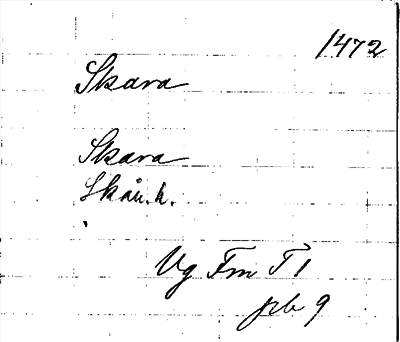 1472
Skara
Skara
Skån. h.
Vg Fm T 1
prb 9